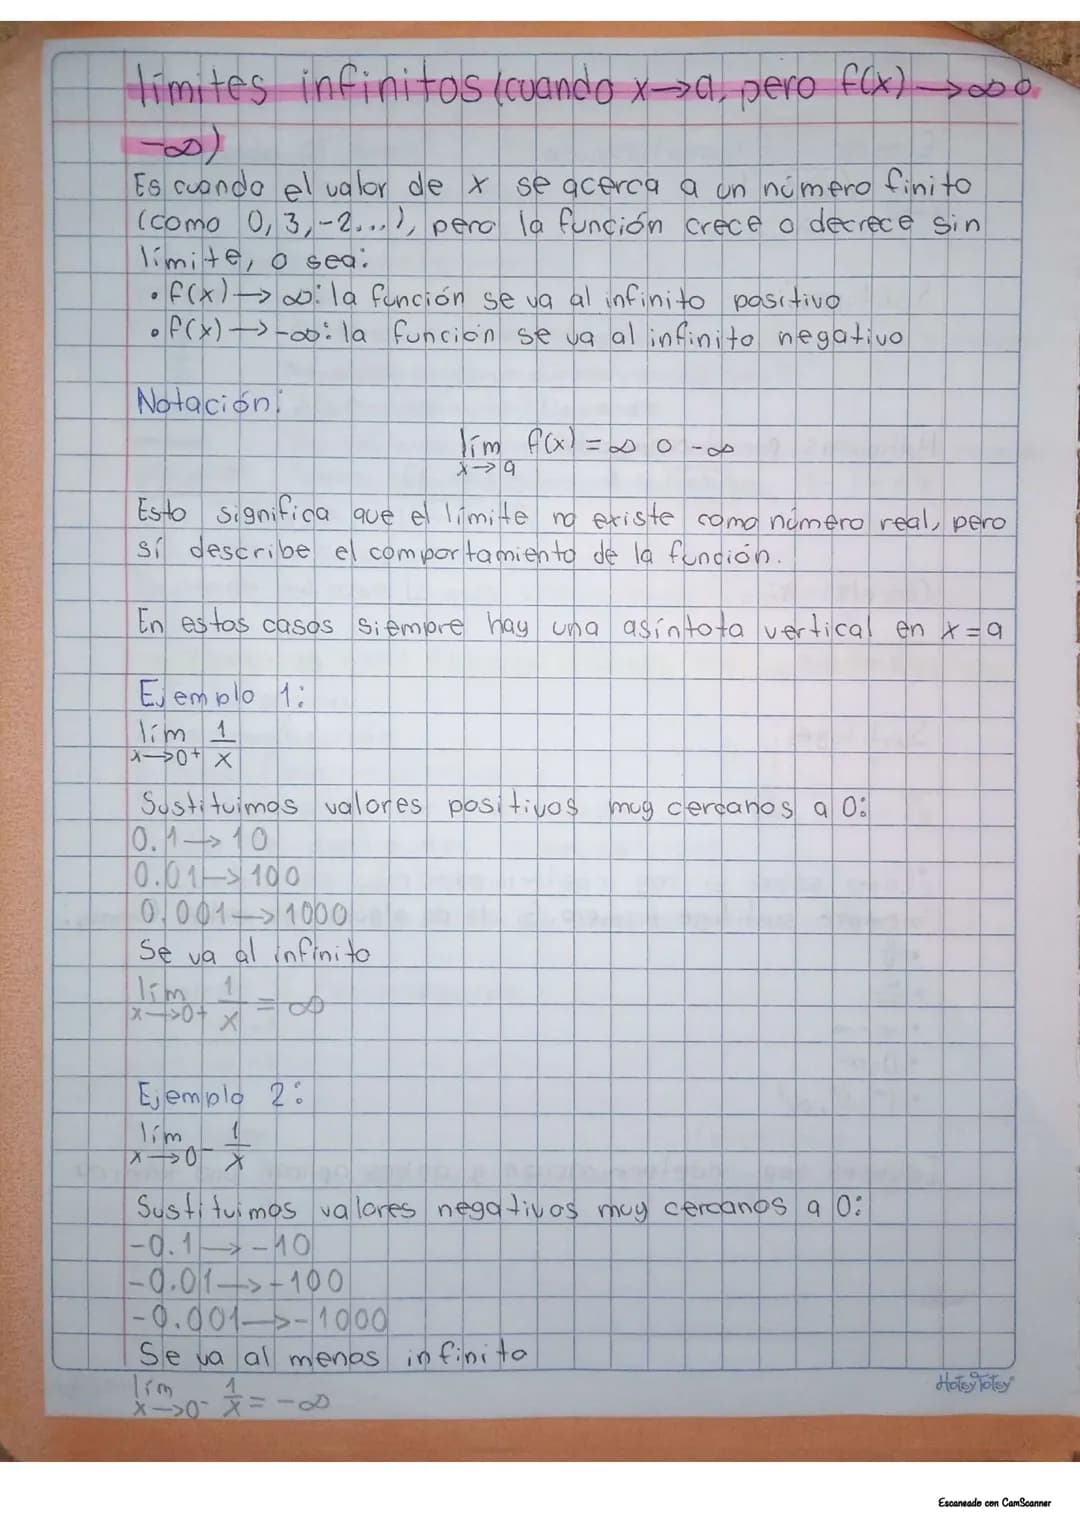 límites infinitos (cuando x→a, pero f(x)→∞ o
-∞)
Es cuando el valor de x se acerca a un número finito
(como 0, 3, -2...), pero la función crece o decrece sin
límite, o sea:
• f(x)→∞: la función se va al infinito positivo
• f(x)→-∞: la función se va al infinito negativo
Notación:
lím f(x) = ∞ o -∞
x→a
Esto significa que el límite no existe como número real, pero
sí describe el comportamiento de la función.
En estos casos siempre hay una asíntota vertical en x=a
Ejemplo 1:
lím 1
x→0+ x
Sustituimos valores positivos muy cercanos a 0:
0.1→10
0.01→100
0.001→1000
Se va al infinito
lím 1
x→0+ x = ∞
Ejemplo 2:
lím 1
x→0- x
Sustituimos valores negativos muy cercanos a 0:
-0.1→-10
-0.01→-100
-0.001→-1000
Se va al menos infinito
lím 1
x→0- x = -∞
HotsyTotsy
Escaneado con CamScanner